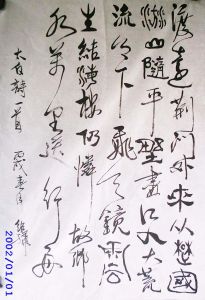 渡遠荆门外来从楚國
游山隨平野盡江入大荒
流月下飛天鏡雲
生结海楼仍憐故鄉
水万里送行舟
太白詩一首 丙戌春
2002/01/01